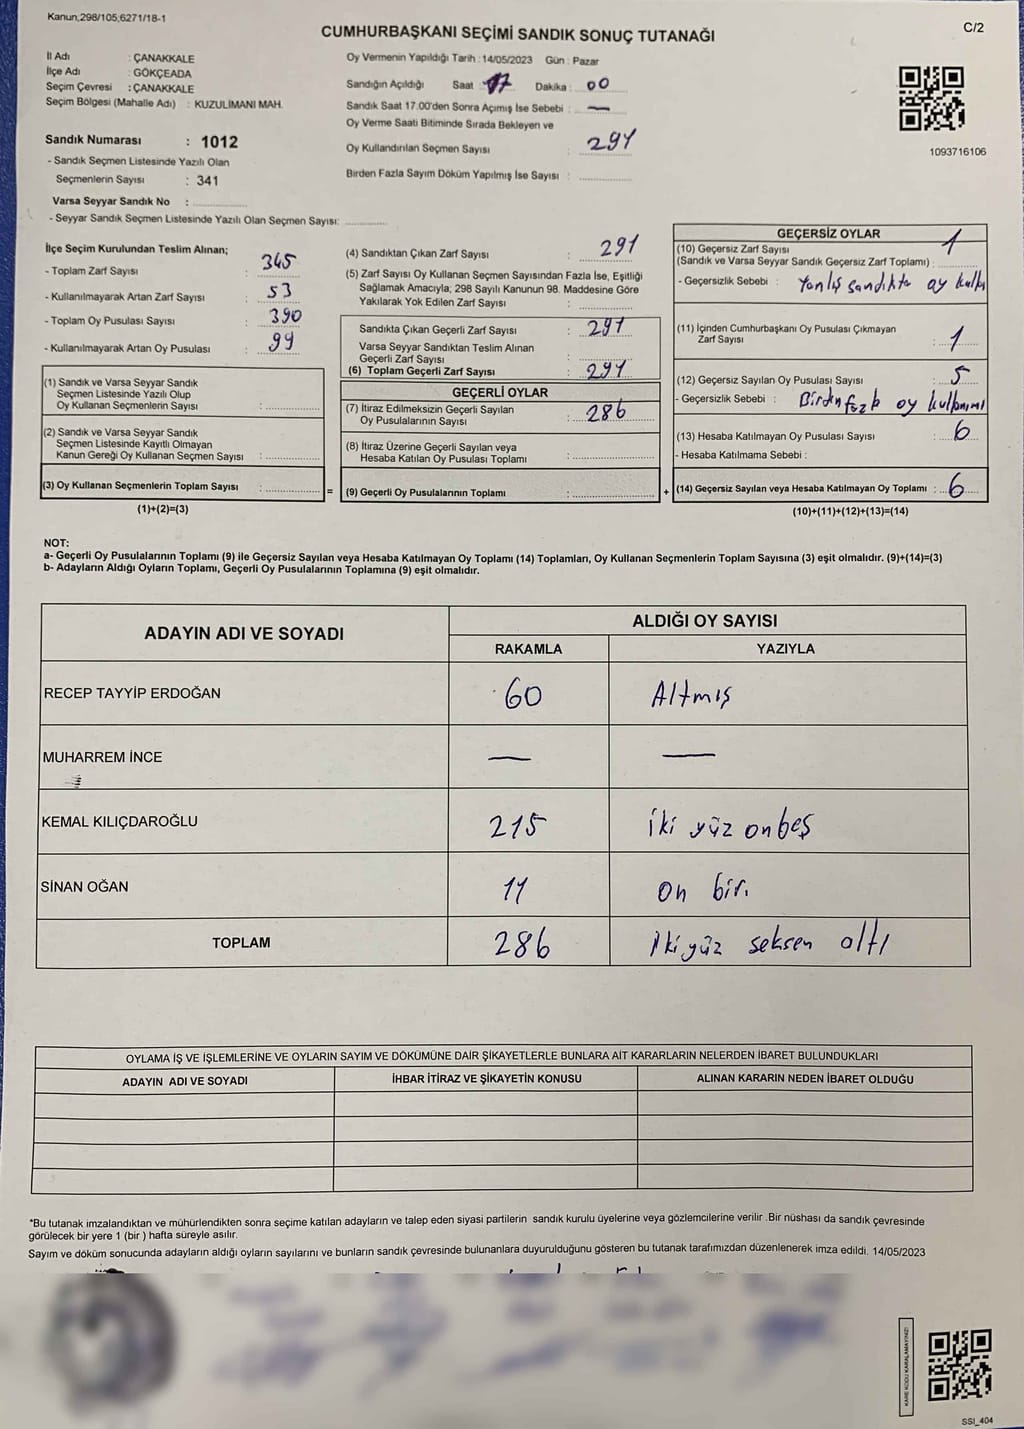 Kanun;298/105;6271/18-1
C/2
CUMHURBAŞKANI SEÇİMİ SANDIK SONUÇ TUTANAĞI
İl Adı : ÇANAKKALE
İlçe Adı : GÖKÇEADA
Seçim Çevresi : ÇANAKKALE
Seçim Bölgesi (Mahalle Adı) : KUZULİMANI MAH.
Sandık Numarası : 1012
- Sandık Seçmen Listesinde Yazılı Olan
Seçmenlerin Sayısı : 341
Varsa Seyyar Sandık No :
- Seyyar Sandık Seçmen Listesinde Yazılı Olan Seçmen Sayısı:
Oy Vermenin Yapıldığı Tarih : 14/05/2023 Gün : Pazar
Sandığın Açıldığı Saat : 17 Dakika : 00
Sandık Saat 17.00'den Sonra Açımış İse Sebebi : —
Oy Verme Saati Bitiminde Sırada Bekleyen ve
Oy Kullandırılan Seçmen Sayısı : 291
Birden Fazla Sayım Döküm Yapılmış İse Sayısı :
1093716106
İlçe Seçim Kurulundan Teslim Alınan;
- Toplam Zarf Sayısı : 345
- Kullanılmayarak Artan Zarf Sayısı : 53
- Toplam Oy Pusulası Sayısı : 390
- Kullanılmayarak Artan Oy Pusulası : 99
(1) Sandık ve Varsa Seyyar Sandık
Seçmen Listesinde Yazılı Olup
Oy Kullanan Seçmenlerin Sayısı :
(2) Sandık ve Varsa Seyyar Sandık
Seçmen Listesinde Kayıtlı Olmayan
Kanun Gereği Oy Kullanan Seçmen Sayısı :
(3) Oy Kullanan Seçmenlerin Toplam Sayısı : =
(1)+(2)=(3)
(4) Sandıktan Çıkan Zarf Sayısı : 291
(5) Zarf Sayısı Oy Kullanan Seçmen Sayısından Fazla İse, Eşitliği
Sağlamak Amacıyla; 298 Sayılı Kanunun 98. Maddesine Göre
Yakılarak Yok Edilen Zarf Sayısı :
Sandıkta Çıkan Geçerli Zarf Sayısı : 291
Varsa Seyyar Sandıktan Teslim Alınan
Geçerli Zarf Sayısı :
(6) Toplam Geçerli Zarf Sayısı : 291
GEÇERLİ OYLAR
(7) İtiraz Edilmeksizin Geçerli Sayılan
Oy Pusulalarının Sayısı : 286
(8) İtiraz Üzerine Geçerli Sayılan veya
Hesaba Katılan Oy Pusulası Toplamı :
(9) Geçerli Oy Pusulalarının Toplamı : +
GEÇERSİZ OYLAR
(10) Geçersiz Zarf Sayısı 1
(Sandık ve Varsa Seyyar Sandık Geçersiz Zarf Toplamı) :
- Geçersizlik Sebebi : Yanlış sandıkta oy
(11) İçinden Cumhurbaşkanı Oy Pusulası Çıkmayan
Zarf Sayısı : 1
(12) Geçersiz Sayılan Oy Pusulası Sayısı : 5
- Geçersizlik Sebebi : Birden fazla oy kullanımı
(13) Hesaba Katılmayan Oy Pusulası Sayısı : 6
- Hesaba Katılmama Sebebi :
(14) Geçersiz Sayılan veya Hesaba Katılmayan Oy Toplamı : 6
(10)+(11)+(12)+(13)=(14)
NOT:
a- Geçerli Oy Pusulalarının Toplamı (9) ile Geçersiz Sayılan veya Hesaba Katılmayan Oy Toplamı (14) Toplamları, Oy Kullanan Seçmenlerin Toplam Sayısına (3) eşit olmalıdır. (9)+(14)=(3)
b- Adayların Aldığı Oyların Toplamı, Geçerli Oy Pusulalarının Toplamına (9) eşit olmalıdır.
ADAYIN ADI VE SOYADI
ALDIĞI OY SAYISI
RAKAMLA YAZIYLA
RECEP TAYYİP ERDOĞAN 60 Altmış
MUHARREM İNCE — —
KEMAL KILIÇDAROĞLU 215 iki yüz onbeş
SİNAN OĞAN 11 on bir.
TOPLAM 286 iki yüz seksen altı
OYLAMA İŞ VE İŞLEMLERİNE VE OYLARIN SAYIM VE DÖKÜMÜNE DAİR ŞİKAYETLERLE BUNLARA AİT KARARLARIN NELERDEN İBARET BULUNDUKLARI
ADAYIN ADI VE SOYADI İHBAR İTİRAZ VE ŞİKAYETİN KONUSU ALINAN KARARIN NEDEN İBARET OLDUĞU
*Bu tutanak imzalandıktan ve mühürlendikten sonra seçime katılan adayların ve talep eden siyasi partilerin sandık kurulu üyelerine veya gözlemcilerine verilir .Bir nüshası da sandık çevresinde
görülecek bir yere 1 (bir ) hafta süreyle asılır.
Sayım ve döküm sonucunda adayların aldığı oyların sayılarını ve bunların sandık çevresinde bulunanlara duyurulduğunu gösteren bu tutanak tarafımızdan düzenlenerek imza edildi. 14/05/2023
KARE KODU KARALAMAYINIZ!
SSI_404